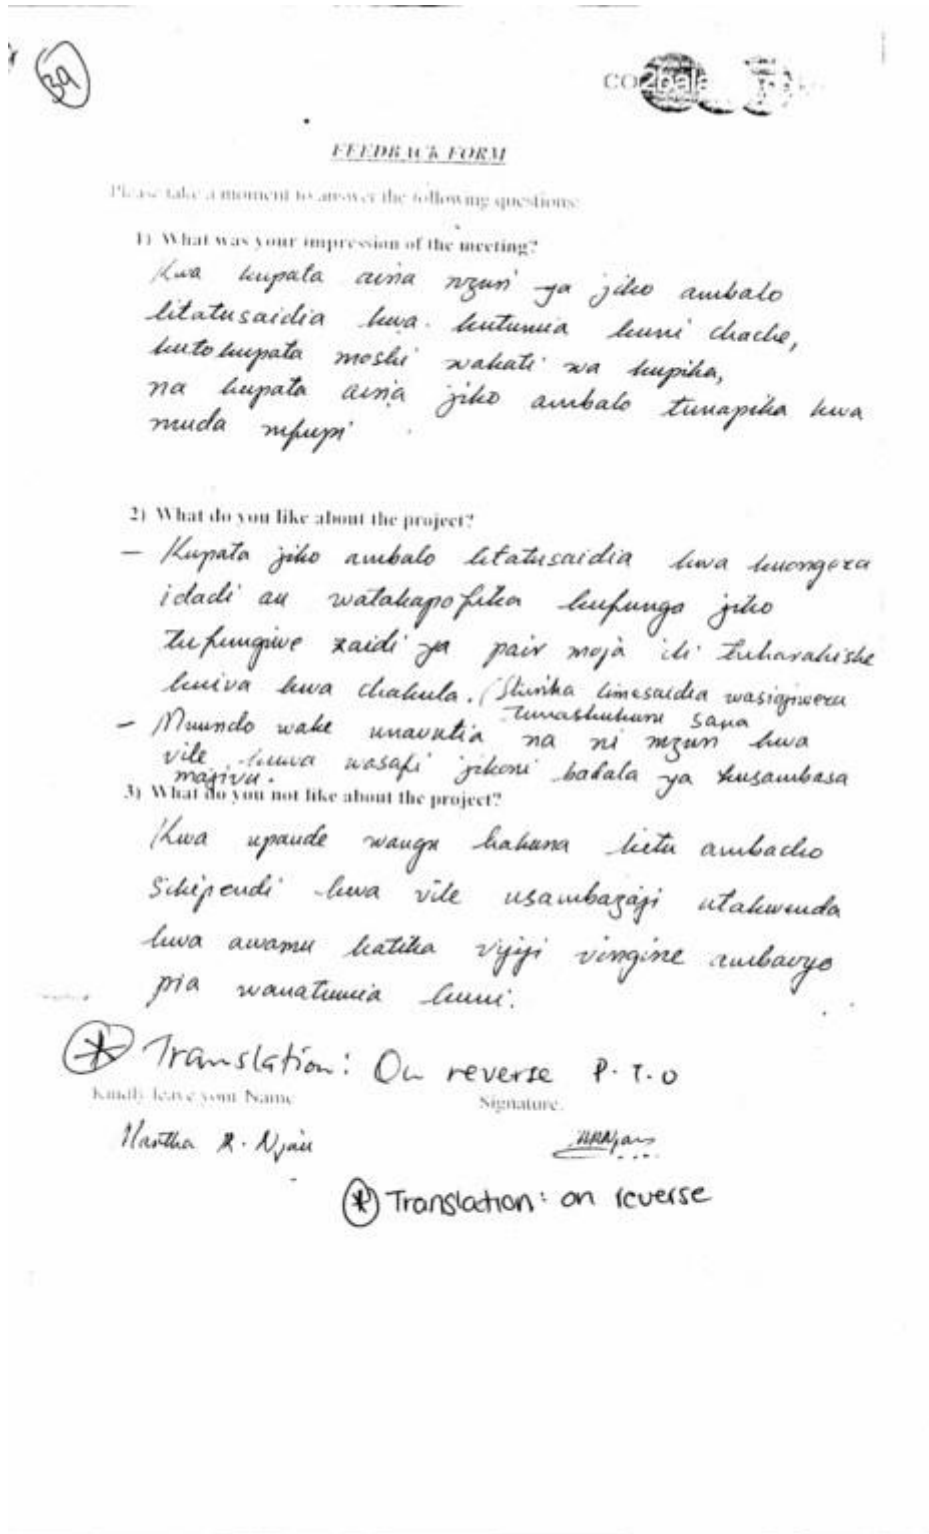 39
co2bala
FEEDBACK FORM
Please take a moment to answer the following questions:
1) What was your impression of the meeting?
Kwa kupata aina nzuri ya jiko ambalo
litatusaidia kwa kutumia kuni chache,
kutokupata moshi wakati wa kupika,
na kupata aina jiko ambalo tunapika kwa
muda mfupi
2) What do you like about the project?
– Kupata jiko ambalo litatusaidia kwa kuongeza
idadi au watakapofika kufunga jiko
tufungiwe zaidi ya pair moja ili tuharakishe
kuiva kwa chakula. (Shirika limesaidia wasiojiweza
Tunashukuru sana
– Muundo wake unavutia na ni mzuri kwa
vile kuwa wasafi jikoni badala ya kusambasa
majivu.
3) What do you not like about the project?
Kwa upande wangu hakuna kitu ambacho
sikipendi kwa vile usambazaji utakwenda
kwa awamu katika vijiji vingine ambavyo
pia wanatumia kuni.
* Translation: On reverse P.T.O
Kindly leave your Name Signature.
Martha R. Njau
* Translation: on reverse